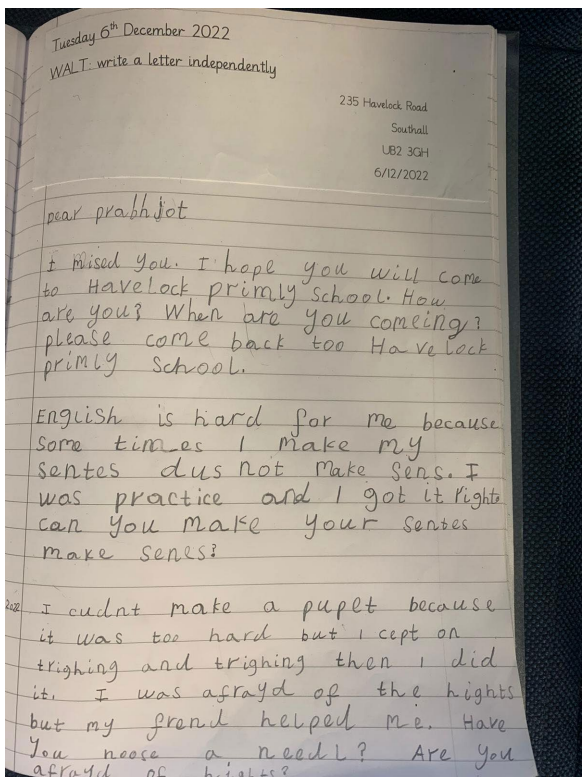 Tuesday 6th December 2022
WALT: write a letter independently
235 Havelock Road
Southall
UB2 3GH
6/12/2022
Dear prabhjot
I mised you. I hope you will come
to Havelock primly school. How
are you? When are you comeing?
please come back too Havelock
primly school.
English is hard for me because
some times I make my
sentes dus not make sens. I
was practice and I got it right
can you make your sentes
make senes?
2022 I cudnt make a pupet because
it was too hard but I cept on
trighing and trighing then I did
it. I was afrayd of the hights
but my frend helped me. Have
you noose a needl? Are you
afrayd of hights?